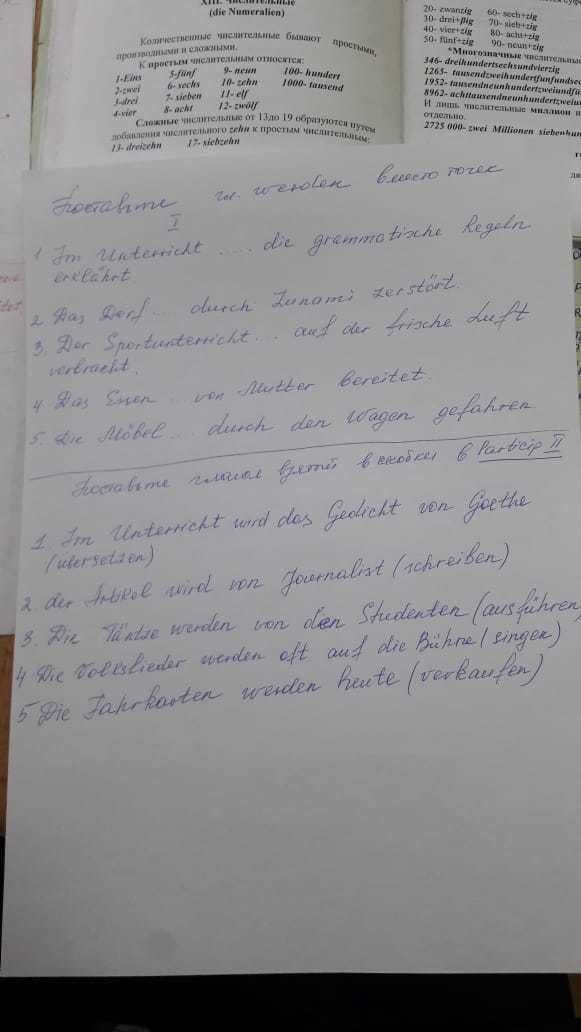 XIII. Числительные
(die Numeralien)
Количественные числительные бывают простыми,
производными и сложными.
К простым числительным относятся:
1-Eins 5-fünf 9- neun 100- hundert
2-zwei 6- sechs 10- zehn 1000- tausend
3-drei 7- sieben 11- elf
4-vier 8- acht 12- zwölf
Сложные числительные от 13до 19 образуются путем
добавления числительного zehn к простым числительным:
13- dreizehn 17- siebzehn
20- zwanzig 60- sech+zig
30- drei+βig 70- sieb+zig
40- vier+zig 80- acht+zig
50- fünf+zig 90- neun+zig
*Многозначные числительные
346- dreihundertsechsundvierzig
1265- tausendzweihundertfunfundsec
1952- tausendneunhundertzweiundfü
8962- achttausendneunhundertzweiun
И лишь числительные миллион и
отдельно.
2725 000- zwei Millionen siebenhun
Поставьте гл. werden вместо точек
I
1 Im Unterricht .... die grammatische Regeln
erklährt.
2. Das Dorf ... durch Zunami zerstört.
3. Der Sportunterricht ... auf der frische Luft
verbracht.
4 Das Essen ... von Mutter bereitet.
5. Die Möbel ... durch den Wagen gefahren
Поставьте глагол взятый в скобки в Particip II
1. Im Unterricht wird das Gedicht von Goethe
(übersetzen)
2. der Artikel wird von Journalist (schreiben)
3. Die Täntze werden von den Studenten (ausführen,
4 Die Volkslieder werden oft auf die Bühne (singen)
5 Die Fahrkarten werden heute (verkaufen)